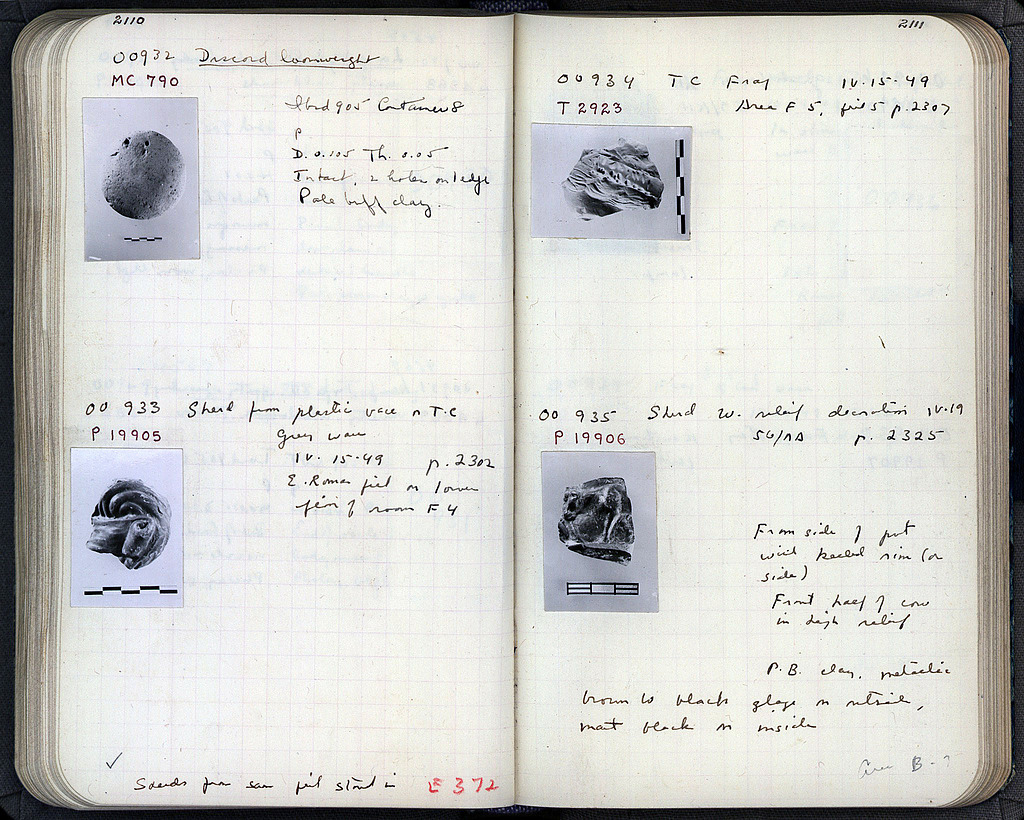 2110
OO932 Discoid loomweight
MC 790
Container 8
P
D. 0.105 Th. 0.05
Intact, 2 holes on 1 edge
Pale buff clay.
OO 933 Sherd from plastic vase or T.C
P 19905 Grey ware
IV. 15-49 p. 2302
E. Roman fill on lower
floor of room F4
✓
Sherds from same fill stored in E 372
2111
OO934 T C Frag IV.15.49
T 2923 Area F 5, fill 5 p. 2307
OO 935 Sherd w. relief decoration IV.19
P 19906 56/ΛΔ p. 2325
From side of pot
with keeled rim (or
side)
Front half of cow
in high relief
P.B. clay, metallic
brown to black glaze on outside,
matt black on inside
B-?